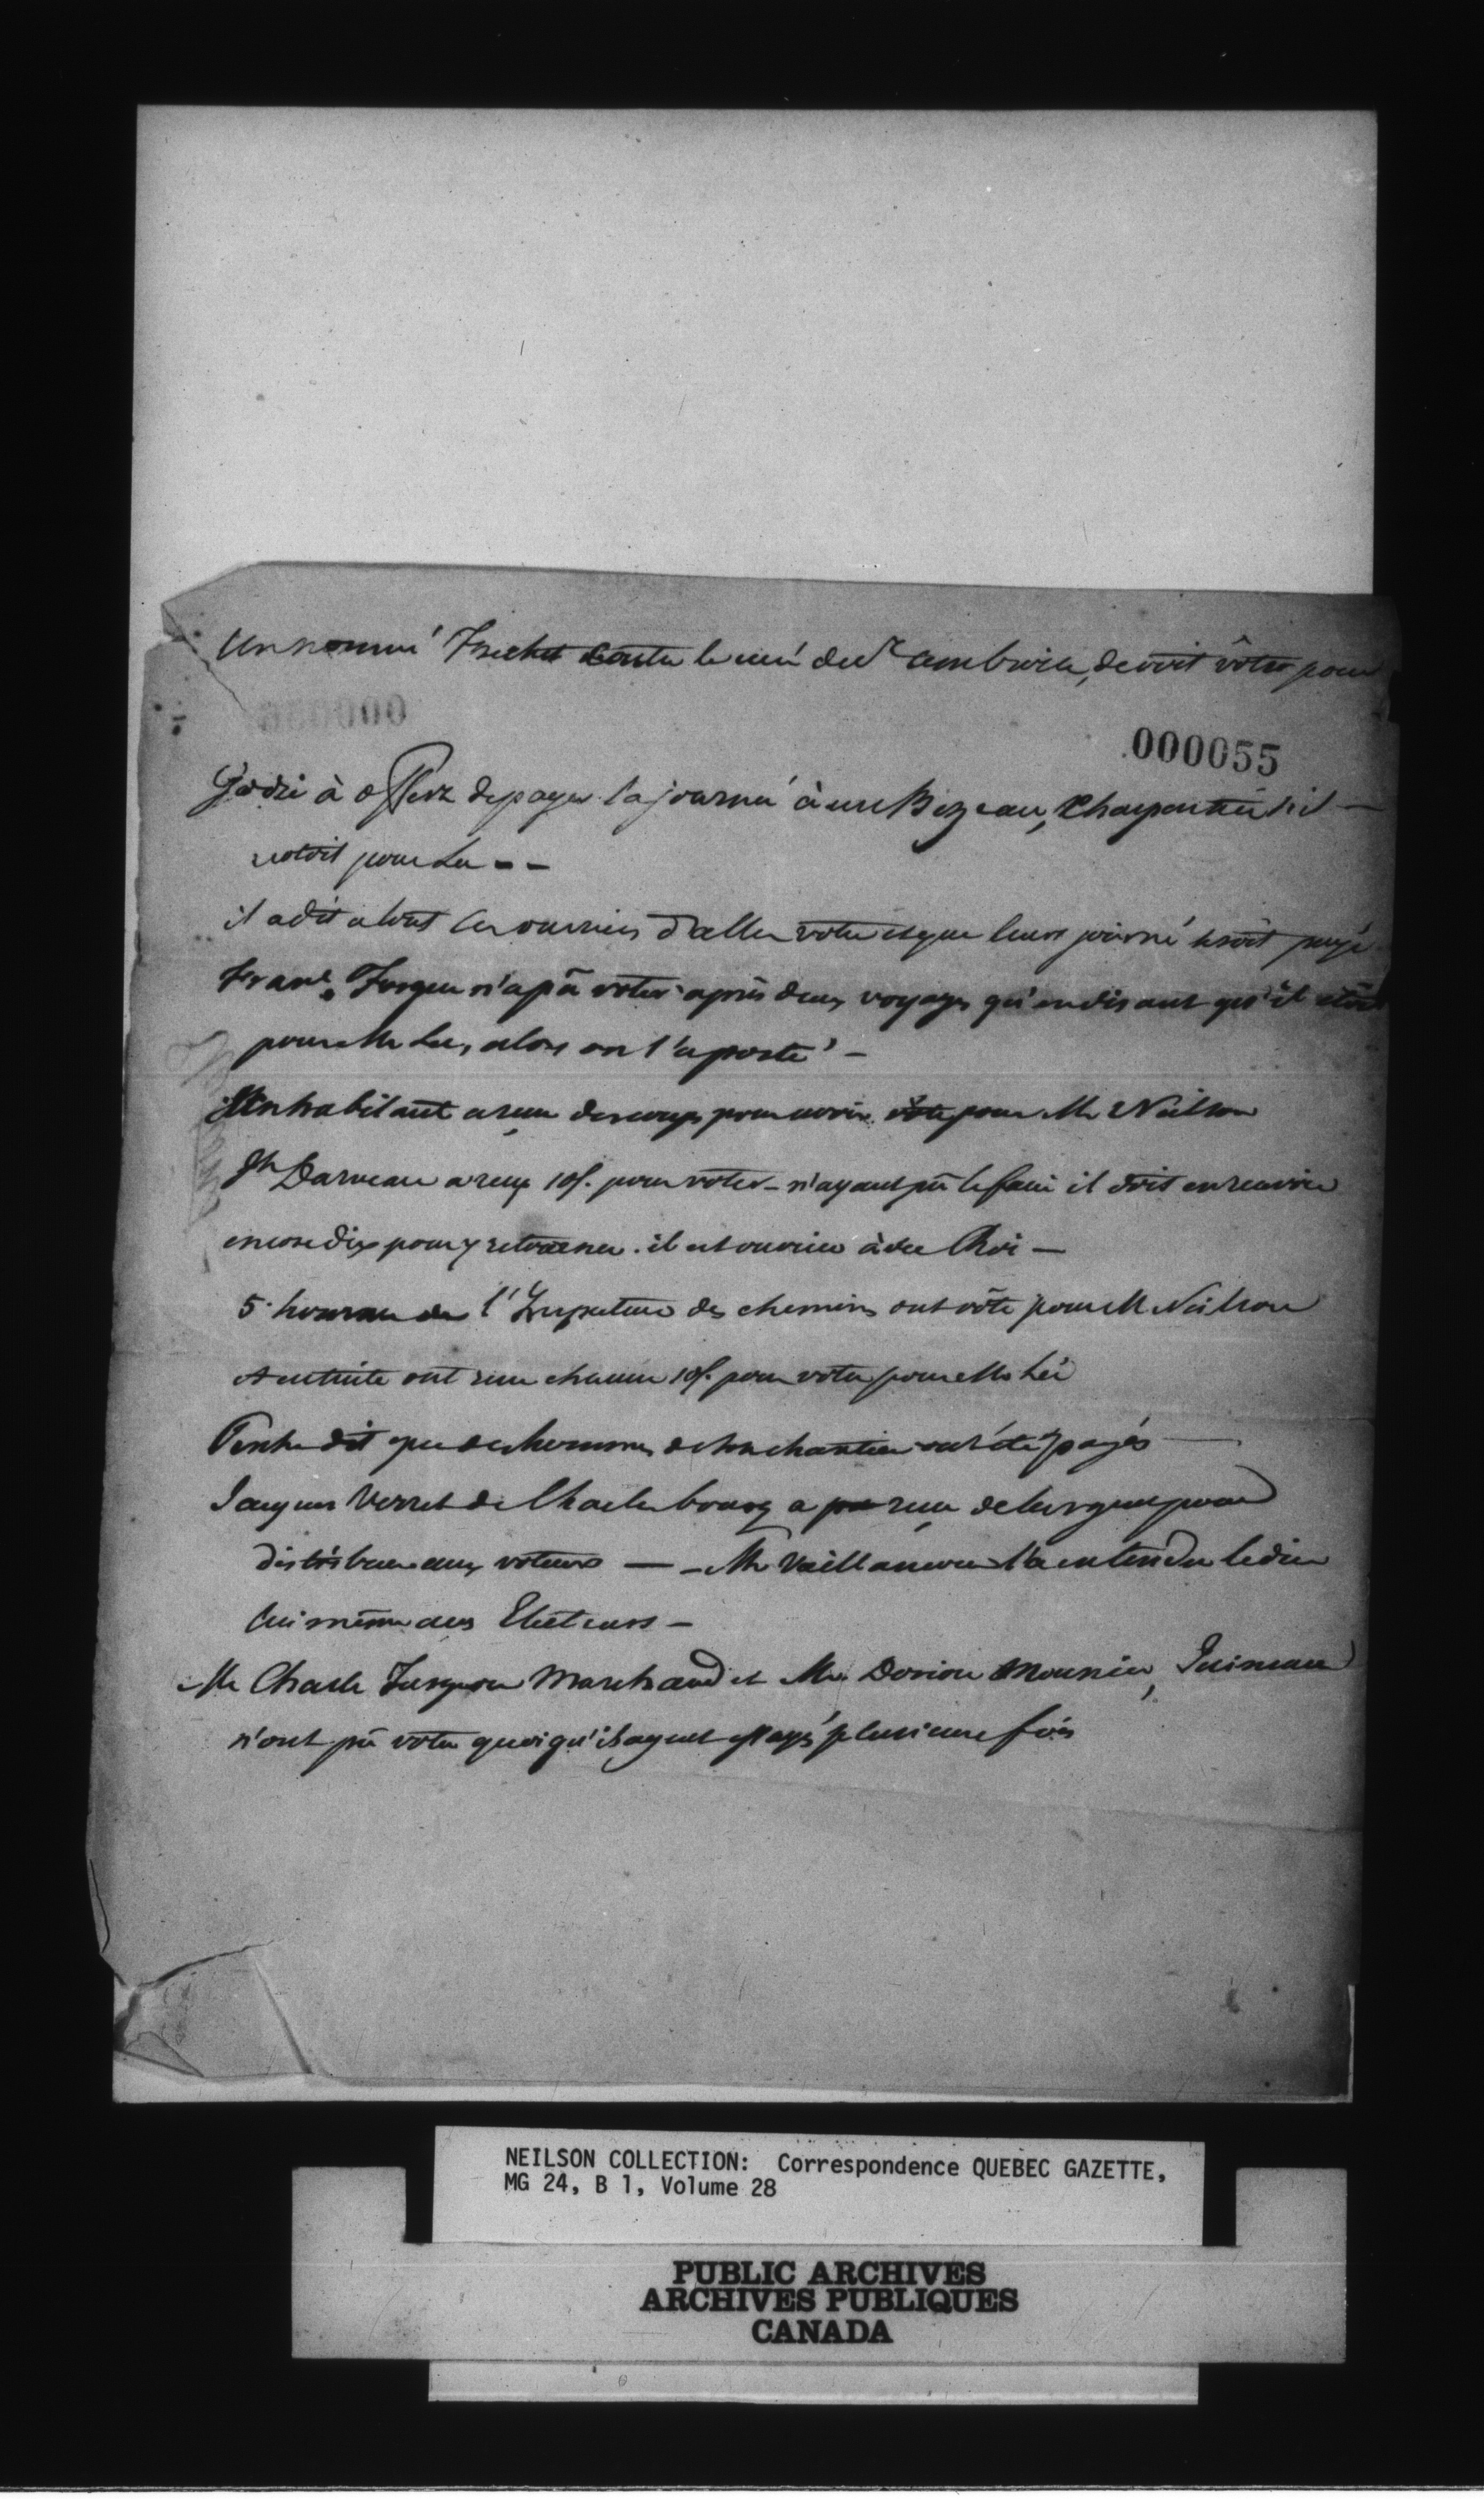 Un nommé Frichet le curé du dr devoit vôter pour
000055
à offert de payer la journé à un Bezeau, Charpentié s'il —
votoit pour Lu - -
il a dit a tout les ouvriers d'aller voter et que leurs journé seroit payé
Frans. Turgeu n'a pû voter après deux voyages qu'en disant qu'il étoit
pour Mr Lee, alors on l'a porté —
Un habitant a reçu des coups pour avoir voté pour Mr Neilson
Jh Darveau a reçu 10/. pour voter - n'ayant pû le faire il doit en recevoir
encore dix pour y retourner. il est ouvrier —
5 hommes de l'Inspecteur des chemins ont vôté pour M Neilson
et ensuite ont reçu chacun 10/. pour voter pour Mr Lée
dit que des hommes de son chantier ont été payés —
Jacques Verret de Charlesbourg a reçu de largent pour
distribuer aux voteurs — Mr Vaillancour l'a entendu le dire
lui même aux Electeurs —
Mr Charle Turgeon Marchand et Mr Dorion Meunier,
n'ont pû voter quoiqu'il ayent essayé plusieure fois
NEILSON COLLECTION: Correspondence QUEBEC GAZETTE,
MG 24, B 1, Volume 28
PUBLIC ARCHIVES
ARCHIVES PUBLIQUES
CANADA